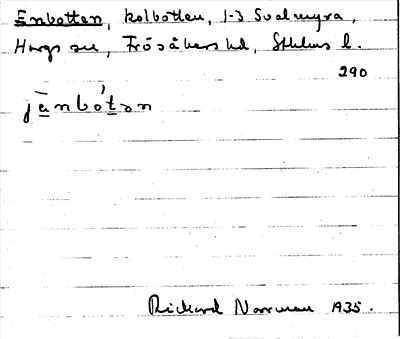 Enbotten, kolbotten, 1-3 Svalmyra,
Hargs sn, Frösåkers hd, Sthlms l.
290
jänbòtən
Richard Norrman 1935.